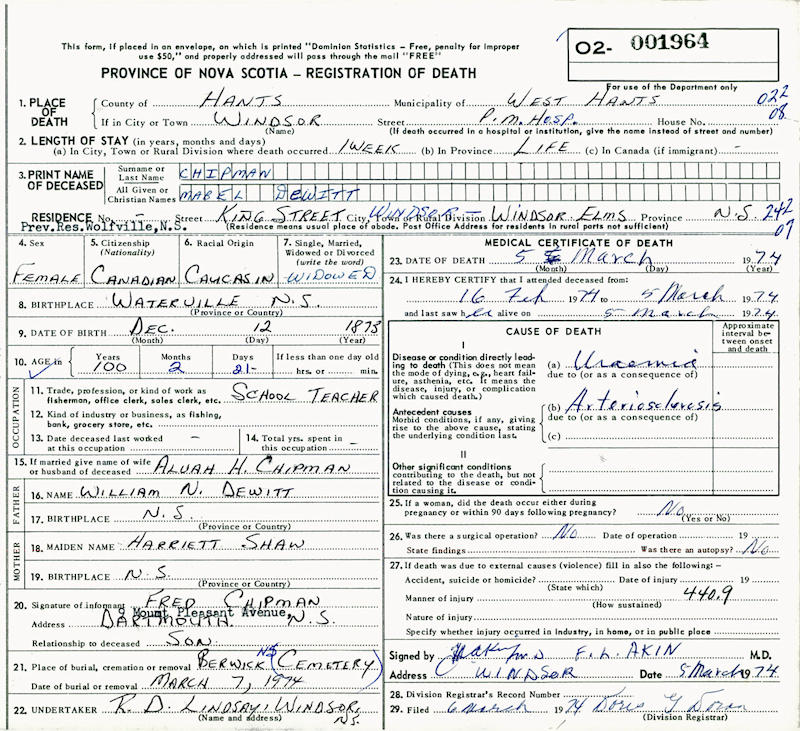 This form, if placed in an envelope, on which is printed "Dominion Statistics – Free, penalty for improper
use $50," and properly addressed will pass through the mail "FREE"
PROVINCE OF NOVA SCOTIA – REGISTRATION OF DEATH
02- 001964
For use of the Department only
022
08
1. PLACE OF DEATH County of HANTS Municipality of WEST HANTS
If in City or Town WINDSOR Street P.M. HOSP. House No.
(Name) (If death occurred in a hospital or institution, give the name instead of street and number)
2. LENGTH OF STAY (in years, months and days)
(a) In City, Town or Rural Division where death occurred 1 WEEK (b) In Province LIFE (c) In Canada (if immigrant) -
3. PRINT NAME OF DECEASED Surname or Last Name CHIPMAN
All Given or Christian Names MABEL DEWITT
RESIDENCE No. - Street KING STREET City, Town or Rural Division WINDSOR – WINDSOR ELMS Province N.S. 242
07
Prev.Res.Wolfville,N.S. (Residence means usual place of abode. Post Office Address for residents in rural parts not sufficient)
4. Sex 5. Citizenship (Nationality) 6. Racial Origin 7. Single, Married, Widowed or Divorced (write the word)
FEMALE CANADIAN CAUCASIN WIDOWED
8. BIRTHPLACE WATERVILLE N.S.
(Province or Country)
9. DATE OF BIRTH DEC. 12 1873
(Month) (Day) (Year)
10. AGE in Years Months Days If less than one day old
100 2 21- hrs. or min.
OCCUPATION
11. Trade, profession, or kind of work as fisherman, office clerk, sales clerk, etc. SCHOOL TEACHER
12. Kind of industry or business, as fishing, bank, grocery store, etc.
13. Date deceased last worked at this occupation - 14. Total yrs. spent in this occupation -
15. If married give name of wife or husband of deceased ALVAH H. CHIPMAN
FATHER
16. NAME WILLIAM N. DEWITT
17. BIRTHPLACE N.S.
(Province or Country)
MOTHER
18. MAIDEN NAME HARRIETT SHAW
19. BIRTHPLACE N.S.
(Province or Country)
20. Signature of informant FRED CHIPMAN
9 Mount Pleasant Avenue,
Address DARTMOUTH N.S.
Relationship to deceased SON
21. Place of burial, cremation or removal BERWICK NS (CEMETERY)
Date of burial or removal MARCH 7, 1974
22. UNDERTAKER R. D. LINDSAY, WINDSOR, N.S.
(Name and address)
MEDICAL CERTIFICATE OF DEATH
23. DATE OF DEATH 5 March 1974
(Month) (Day) (Year)
24. I HEREBY CERTIFY that I attended deceased from:
16 Feb 1974 to 5 March 1974
and last saw her alive on 5 march 1974
CAUSE OF DEATH
Approximate interval between onset and death
I
Disease or condition directly leading to death (This does not mean the mode of dying, e.g., heart failure, asthenia, etc. It means the disease, injury, or complication which caused death.)
(a) Uraemia
due to (or as a consequence of)
Antecedent causes
Morbid conditions, if any, giving rise to the above cause, stating the underlying condition last.
(b) Arteriosclerosis
due to (or as a consequence of)
(c)
II
Other significant conditions contributing to the death, but not related to the disease or condition causing it.
25. If a woman, did the death occur either during pregnancy or within 90 days following pregnancy? No
(Yes or No)
26. Was there a surgical operation? No Date of operation 19
State findings Was there an autopsy? No
27. If death was due to external causes (violence) fill in also the following:–
Accident, suicide or homicide? Date of injury 19
(State which)
Manner of injury 440.9
(How sustained)
Nature of injury
Specify whether injury occurred in industry, in home, or in public place
Signed by F. L. AKIN M.D.
Address WINDSOR Date 5 March 1974
28. Division Registrar's Record Number
29. Filed 6 march 1974 Doris G Doran
(Division Registrar)